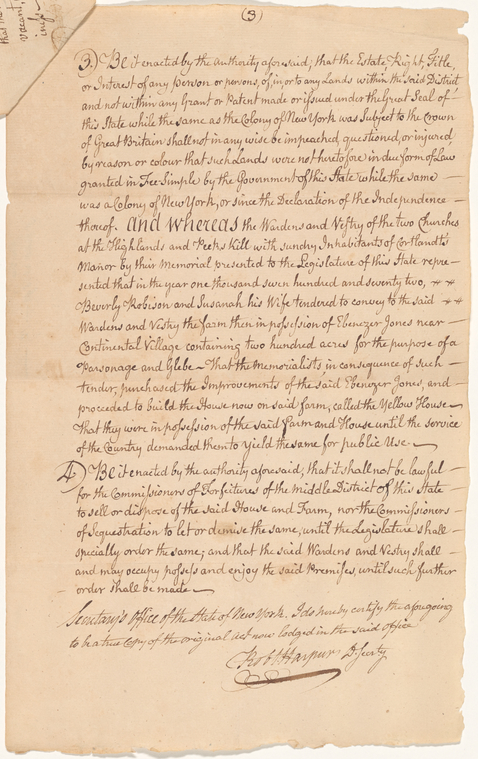 that the
vacant,
(3)
3.) Be it enacted by the authority aforesaid; that the Estate Right, Title,
or Interest of any person or persons, of, in, or to any Lands within the said District
and not within any Grant or Patent made or issued under the Great Seal of
this State while the same as the Colony of New York was Subject to the Crown
of Great Britain shall not in any wise be impeached, questioned, or injured
by reason or colour that such Lands were not heretofore in due form of Law
granted in Fee Simple by the Government of this State while the same —
was a Colony of New York, or since the Declaration of the Independence —
thereof. And whereas the Wardens and Vestry of the two Churches
at the Highlands and Peeks kill with sundry Inhabitants of Cortlandt's
Manor by their Memorial presented to the Legislature of this State repre-
sented that in the year one thousand seven hundred and seventy two,
Beverly Robison and Susanah his Wife tendered to convey to the said
Wardens and Vestry the farm then in possession of Ebenezer Jones near —
Continental Village containing two hundred acres for the purpose of a
Parsonage and Glebe — That the Memorialists, in consequence of such —
tender, purchased the Improvements of the said Ebenezer Jones, and —
proceeded to build the House now on said farm, called the Yellow House —
That they were in possession of the said Farm and House until the service
of the Country demanded them to yield the same for public Use. —
4.) Be it enacted by the authority aforesaid; that it shall not be lawful —
for the Commissioners of Forfeitures of the middle District of this State
to sell or dispose of the said House and Farm, nor the Commissioners
of Sequestration to let or demise the same, until the Legislature shall —
specially order the same; and that the said Wardens and Vestry shall —
and may occupy possess and enjoy the said Premises, until such further
order shall be made —
Secretary's Office of the State of New York. I do hereby certify the aforegoing
to be a true Copy of the original Act now lodged in the said Office
Robt Harpur D. Secty